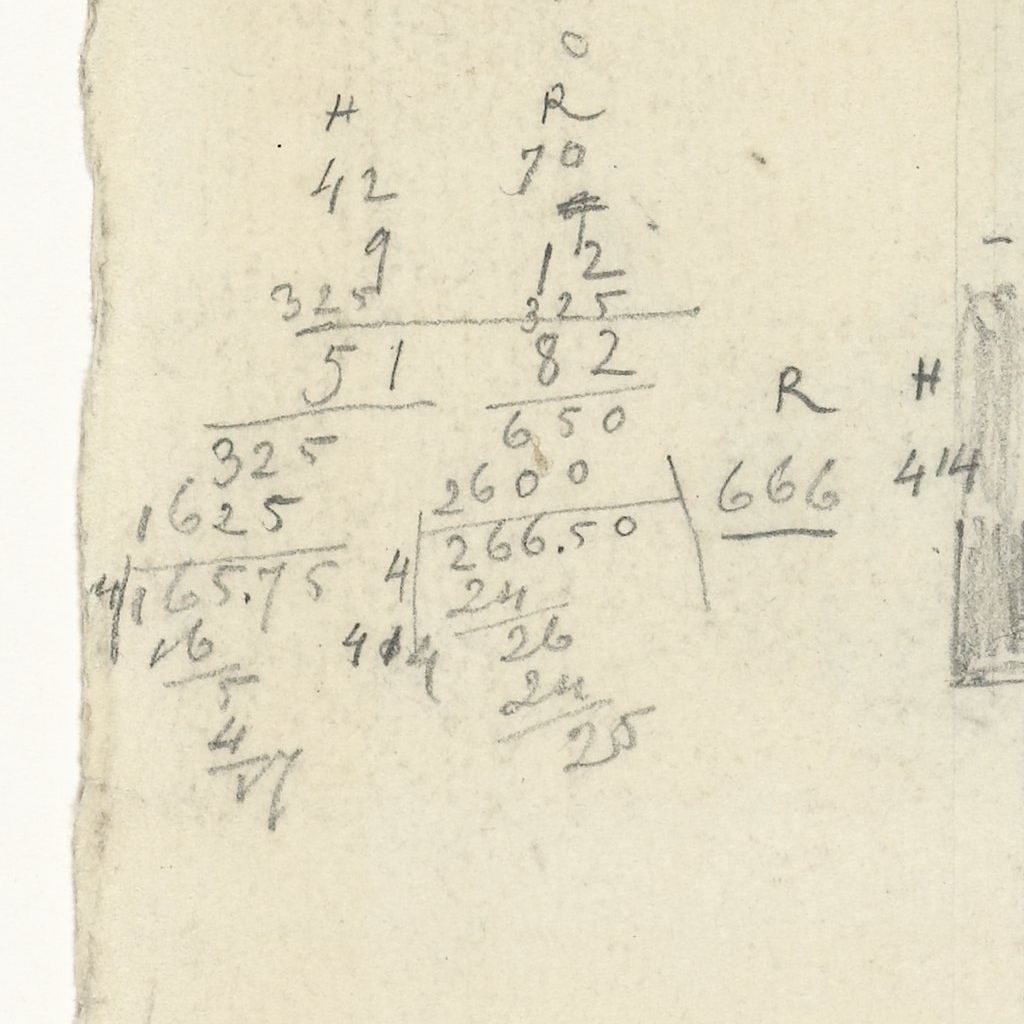 0
H R
42 70
9
12
325 325
51 82
325 650
1625 2600
4 165.75 4 266.50 666
R H
414
16 24
5 26
4 24
17 25
414